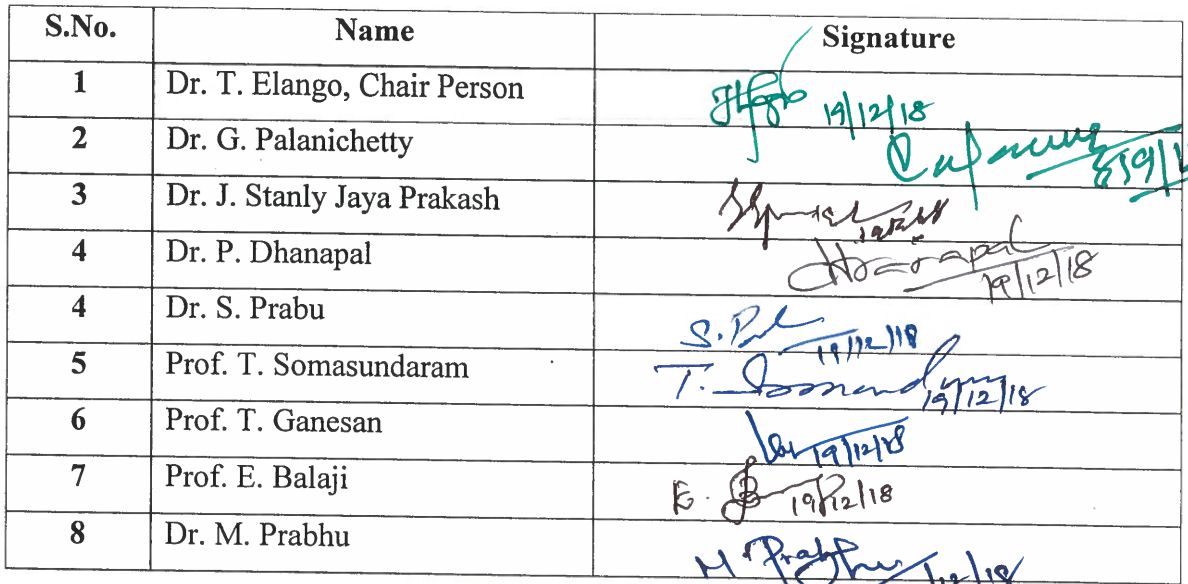 S.No. Name Signature
1 Dr. T. Elango, Chair Person 19/12/18
2 Dr. G. Palanichetty
3 Dr. J. Stanly Jaya Prakash
4 Dr. P. Dhanapal Dhanapal 19/12/18
4 Dr. S. Prabu S. 19/12/18
5 Prof. T. Somasundaram T. 19/12/18
6 Prof. T. Ganesan 19/12/18
7 Prof. E. Balaji E. 19/12/18
8 Dr. M. Prabhu M. Prabhu /12/18